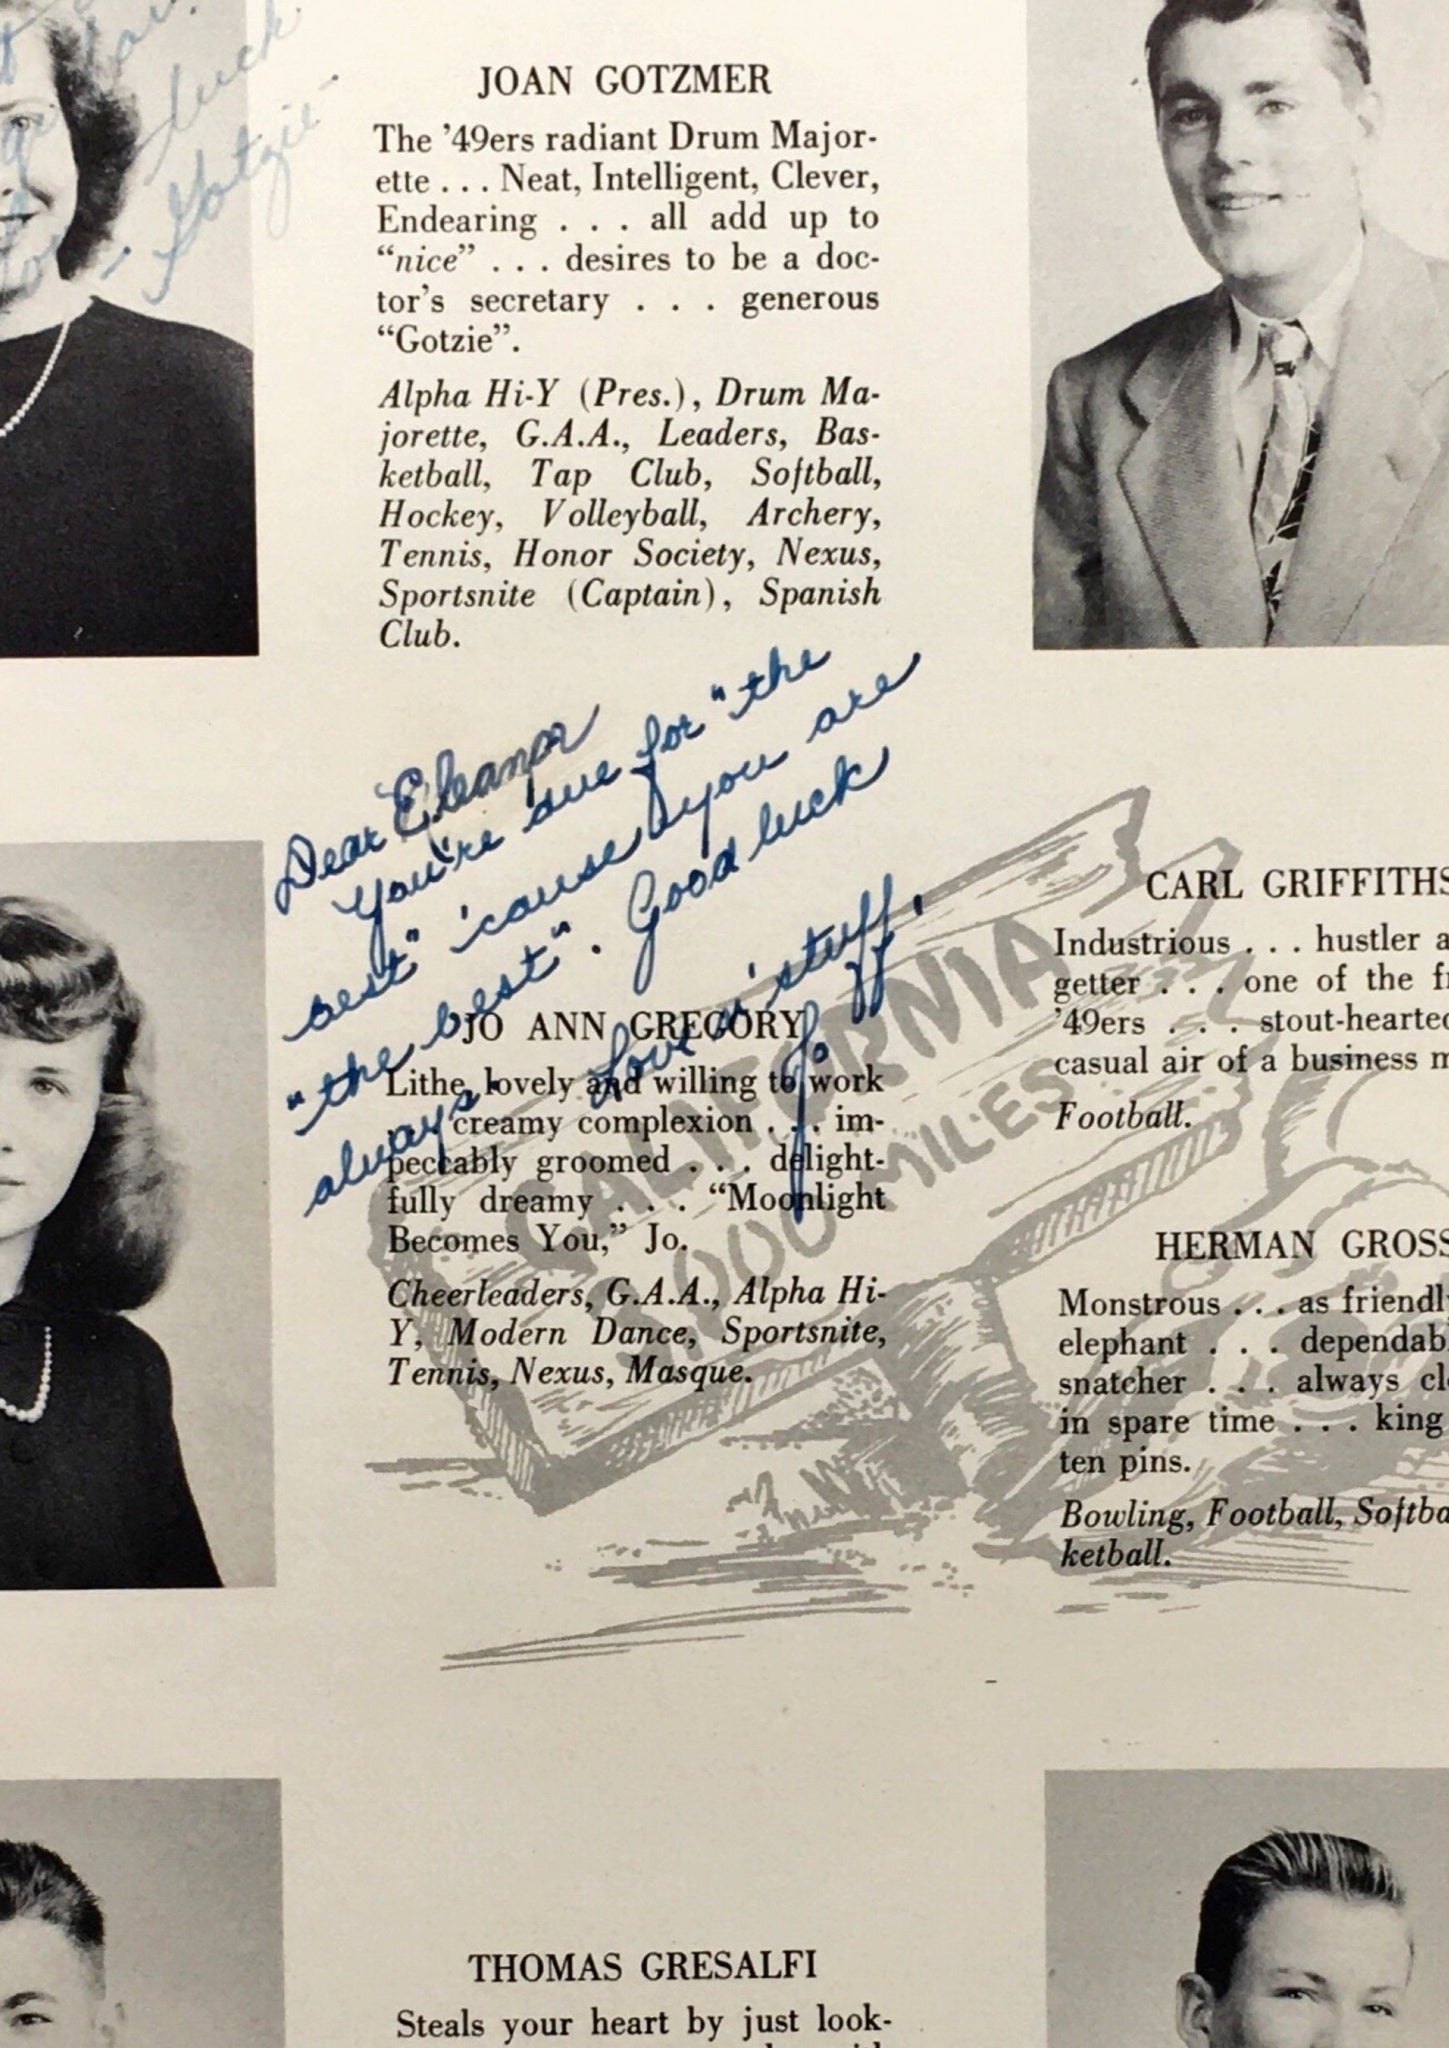 luck
Gotzie
JOAN GOTZMER
The '49ers radiant Drum Major-
ette . . . Neat, Intelligent, Clever,
Endearing . . . all add up to
“nice” . . . desires to be a doc-
tor's secretary . . . generous
“Gotzie”.
Alpha Hi-Y (Pres.), Drum Ma-
jorette, G.A.A., Leaders, Bas-
ketball, Tap Club, Softball,
Hockey, Volleyball, Archery,
Tennis, Honor Society, Nexus,
Sportsnite (Captain), Spanish
Club.
Dear Eleanor
You're due for "the
best" 'cause you are
"the best". Good luck
always. Love n' stuff,
Jo
JO ANN GREGORY
Lithe, lovely and willing to work
creamy complexion . . . im-
peccably groomed . . . delight-
fully dreamy . . . “Moonlight
Becomes You,” Jo.
Cheerleaders, G.A.A., Alpha Hi-
Y, Modern Dance, Sportsnite,
Tennis, Nexus, Masque.
CALIFORNIA
000 MILES
CARL GRIFFITHS
Industrious . . . hustler a
getter . . . one of the f
'49ers . . . stout-hearted
casual air of a business m
Football.
HERMAN GROSS
Monstrous . . . as friendly
elephant . . . dependab
snatcher . . . always cl
in spare time . . . king
ten pins.
Bowling, Football, Softba
ketball.
THOMAS GRESALFI
Steals your heart by just look-